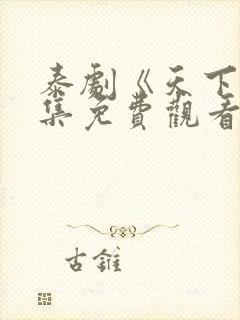 泰劇《天下
集免費觀看
古錐